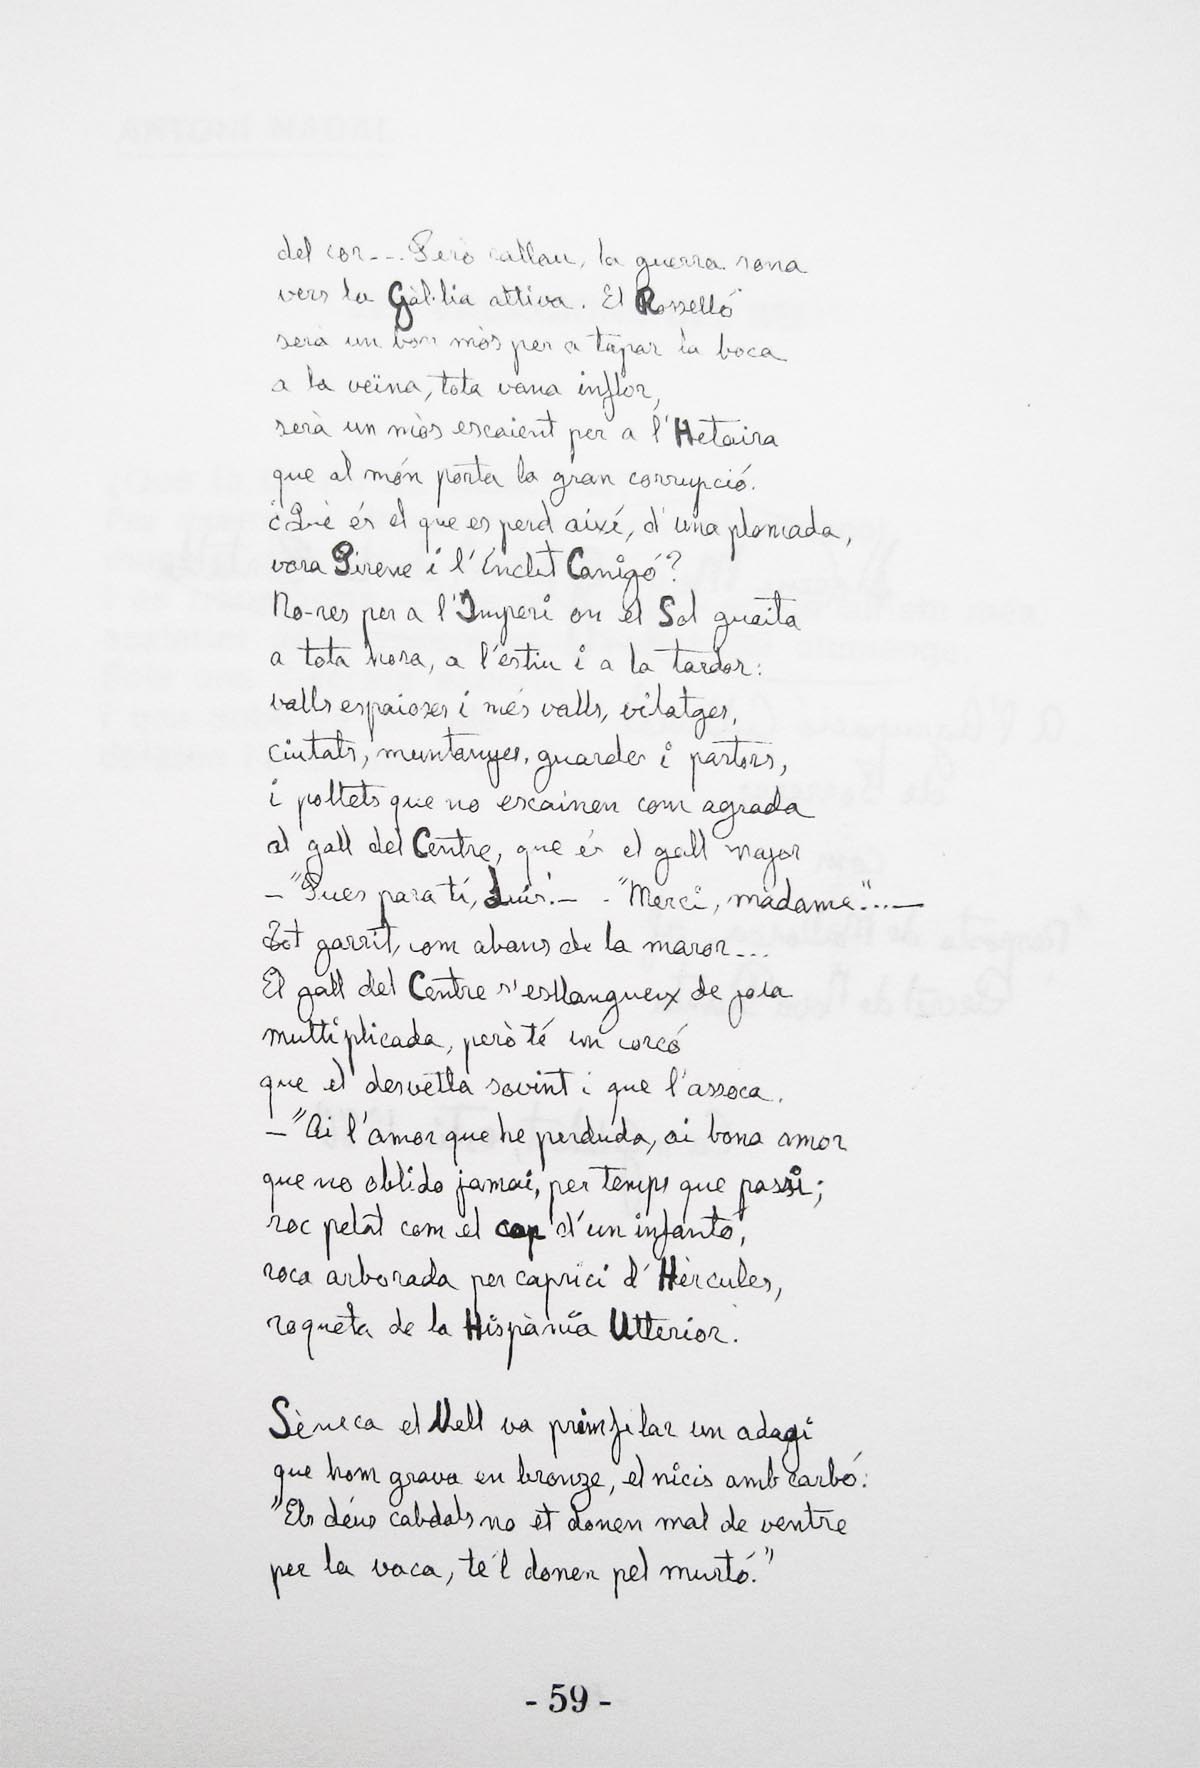 del cor... Però callau, la guerra sona
vers la Gàl·lia altiva. El Rosselló
serà un bon mòs per a tapar la boca
a la veïna, tota vana inflor,
serà un mòs escaient per a l'Hetaira
que al món porta la gran corrupció.
¿Què és el que es perd així, d'una plomada,
vora Pirene i l'ínclit Canigó?
No-res per a l'Imperi on el Sol guaita
a tota hora, a l'estiu i a la tardor:
valls espaioses i més valls, vilatges,
ciutats, muntanyes, guardes i pastors,
i pollets que no escainen com agrada
al gall del Centre, que és el gall major
—"Pues para tí, Luis!— - "Merci, madame"...—
Tot garrit, com abans de la maror...
El gall del Centre s'esllangueix de joia
multiplicada, però té un corcó
que el desvetlla sovint i que l'assoca.
—"Ai l'amor que he perduda, ai bona amor
que no oblido jamai, per temps que passi;
roc pelat com el cap d'un infantó,
roca arborada per caprici d'Hèrcules,
roqueta de la Hispània Ulterior.
Sèneca el Vell va primfilar un adagi
que hom grava en bronze, el nicis amb carbó:
"Els déus cabdals no et donen mal de ventre
per la vaca, te'l donen pel murtó."
- 59 -